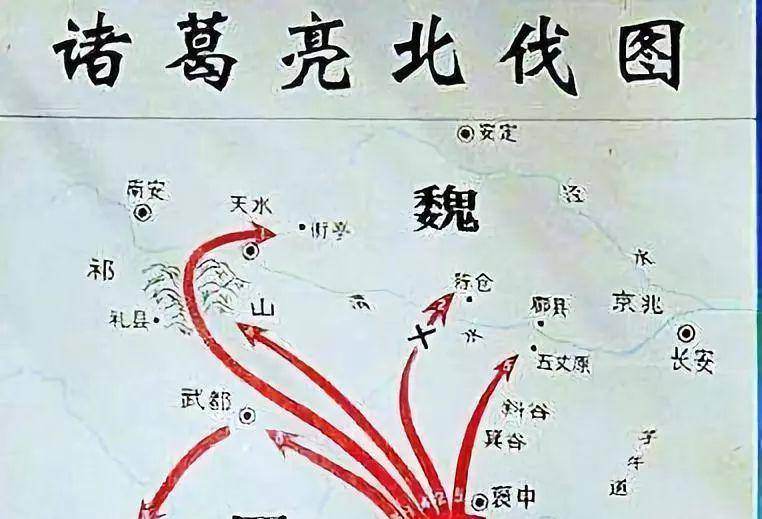 诸葛亮北伐图
安定
南安
天水
魏
泾
街亭
水
祁
陈仓
礼县
山
渭
郿县
京兆
水
五丈原
长安
武都
斜谷
箕谷
子
午
道
褒中